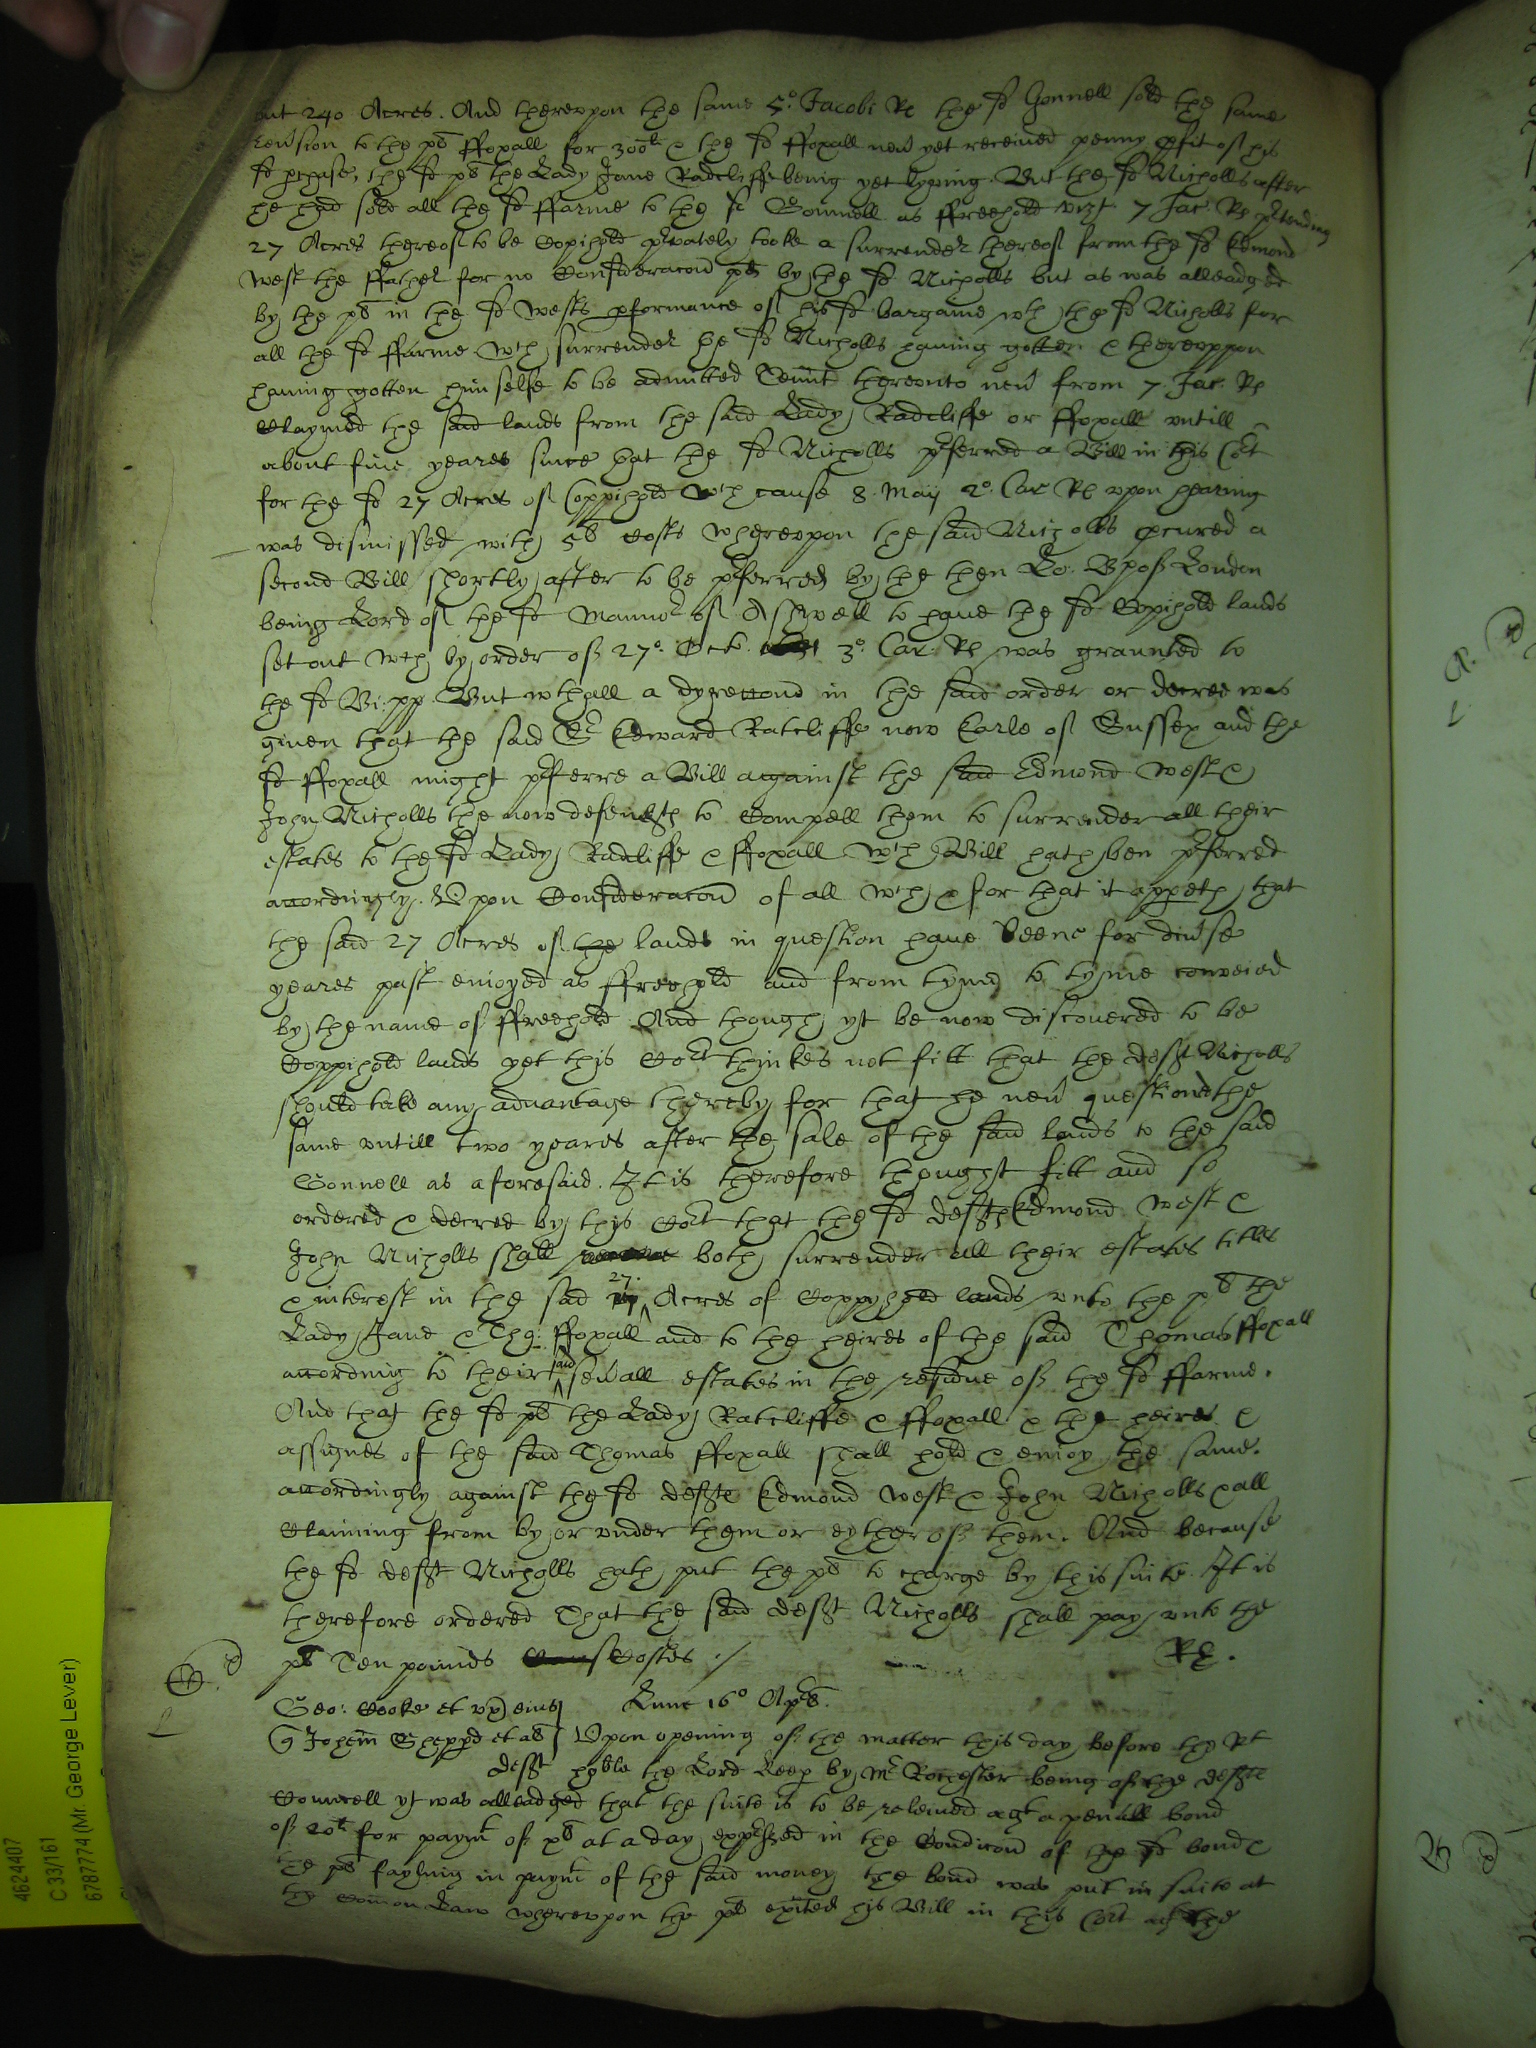 out 240 Acres. And therevpon the same 5º. Jacobi Rs the sd Gonnell sold the same
reuersion to the plt ffoxall for 300li & the sd ffoxall neu' yet receiued penny pfit of his
sd pchase, the sd plt the Lady Jane Radcliffe being yet lyving. But the sd Nicholls after
he had sold all the sd ffarme to the sd Gonnell as ffreehold vizt 7 Jac. Rs ptending
27 Acres thereof to be Copihold privately tooke a surrender thereof from the sd Edmond
West the ffather for no Consideracon pd by the sd Nicholls but as was alleadged
by the plt in the sd Wests pformance of his sd bargaine wth the sd Nicholls for
all the sd ffarme wch surrender he sd Nicholls hauing gotten & therevppon
hauing gotten himselfe to be admitted Tennt therevnto neu' from 7. Jac. Rs
Claymed the said lands from the said Lady Radcliffe or ffoxall vntill
about fiue yeares since that the sd Nicholls pferred a Bill in this Cort
for the sd 27 Acres of Coppihold wch cause 8. Maij 2º. Car Rs vpon hearing
was dismissed with 5s Costs wherevpon the said Nicholls pcured a
second Bill shortly after to be pferred by the then Lo: Bp of London
being Lord of the sd Mannor of Ashwell to haue the sd Copihold lands
set out wch by order of 27º. Octo. 3º. Car. Rs was graunted to
the sd Bi:pp But wthall a dyreccon in the said order or decree was
giuen that the said Sr Edward Ratcliffe now Earle of Sussex and the
sd ffoxall might pferre a Bill against the said Edmond West &
John Nicholls the now defendts to Compell them to surrender all their
estates to the sd Lady Radcliffe & ffoxall wch Bill hath ben pferred
accordingly. Vpon Consideracon of all wch & for that it appeth that
the said 27 Acres of the lands in question haue beene for diu'se
yeares past enioyed as ffreehold and from tyme to tyme conveied
by the name of ffreehold And though yt be now discouered to be
Coppihold lands yet this Cort thinkes not fitt that the deft Nicholls
should take any aduantage thereby for that he neu' questioned the
same vntill two yeares after the sale of the said lands to the said
Gonnell as aforesaid. It is therefore thought fitt and so
ordered & decreed by this Cort that the sd defts Edmond West &
John Nicholls shall both surrender all their estates titles
& interest in the said 27. Acres of Coppyhold lands vnto the plt the
Lady Jane & Tho: ffoxall and to the heires of the said Thomas ffoxall
according to their said seu'all estates in the residue of the sd ffarme.
And that the sd plt the Lady Ratcliffe & ffoxall & the heires &
assignes of the said Thomas ffoxall shall hold & enioy the same
accordingly against the sd defts Edmond West & John Nicholls & all
Claiming from by or vnder them or eyther of them. And because
the sd deft Nicholls hath put the plt to charge by this suite. It is
therefore ordered That the said deft Nicholls shall pay vnto the
plt Ten pounds Costes ./ RE.
Geo: Cooke et vx eius Lune 16º Apr
Johem Shepperd et al Vpon opening of the matter this day before the Rt
deft hoble the Lord Keep by Mr Rochester being of the defts
Councell yt was alleadged that the suite is to be releiued agt a penall bond
of 20li for paymt of xli at a day expressed in the Condicon of the sd bond &
the plt fayling in paymt of the said money the bond was put in suite at
the Comon Law wherevpon the plt exhited his Bill in this Cort agt the
4624407
C 33/161
6787774 (Mr. George Lever)